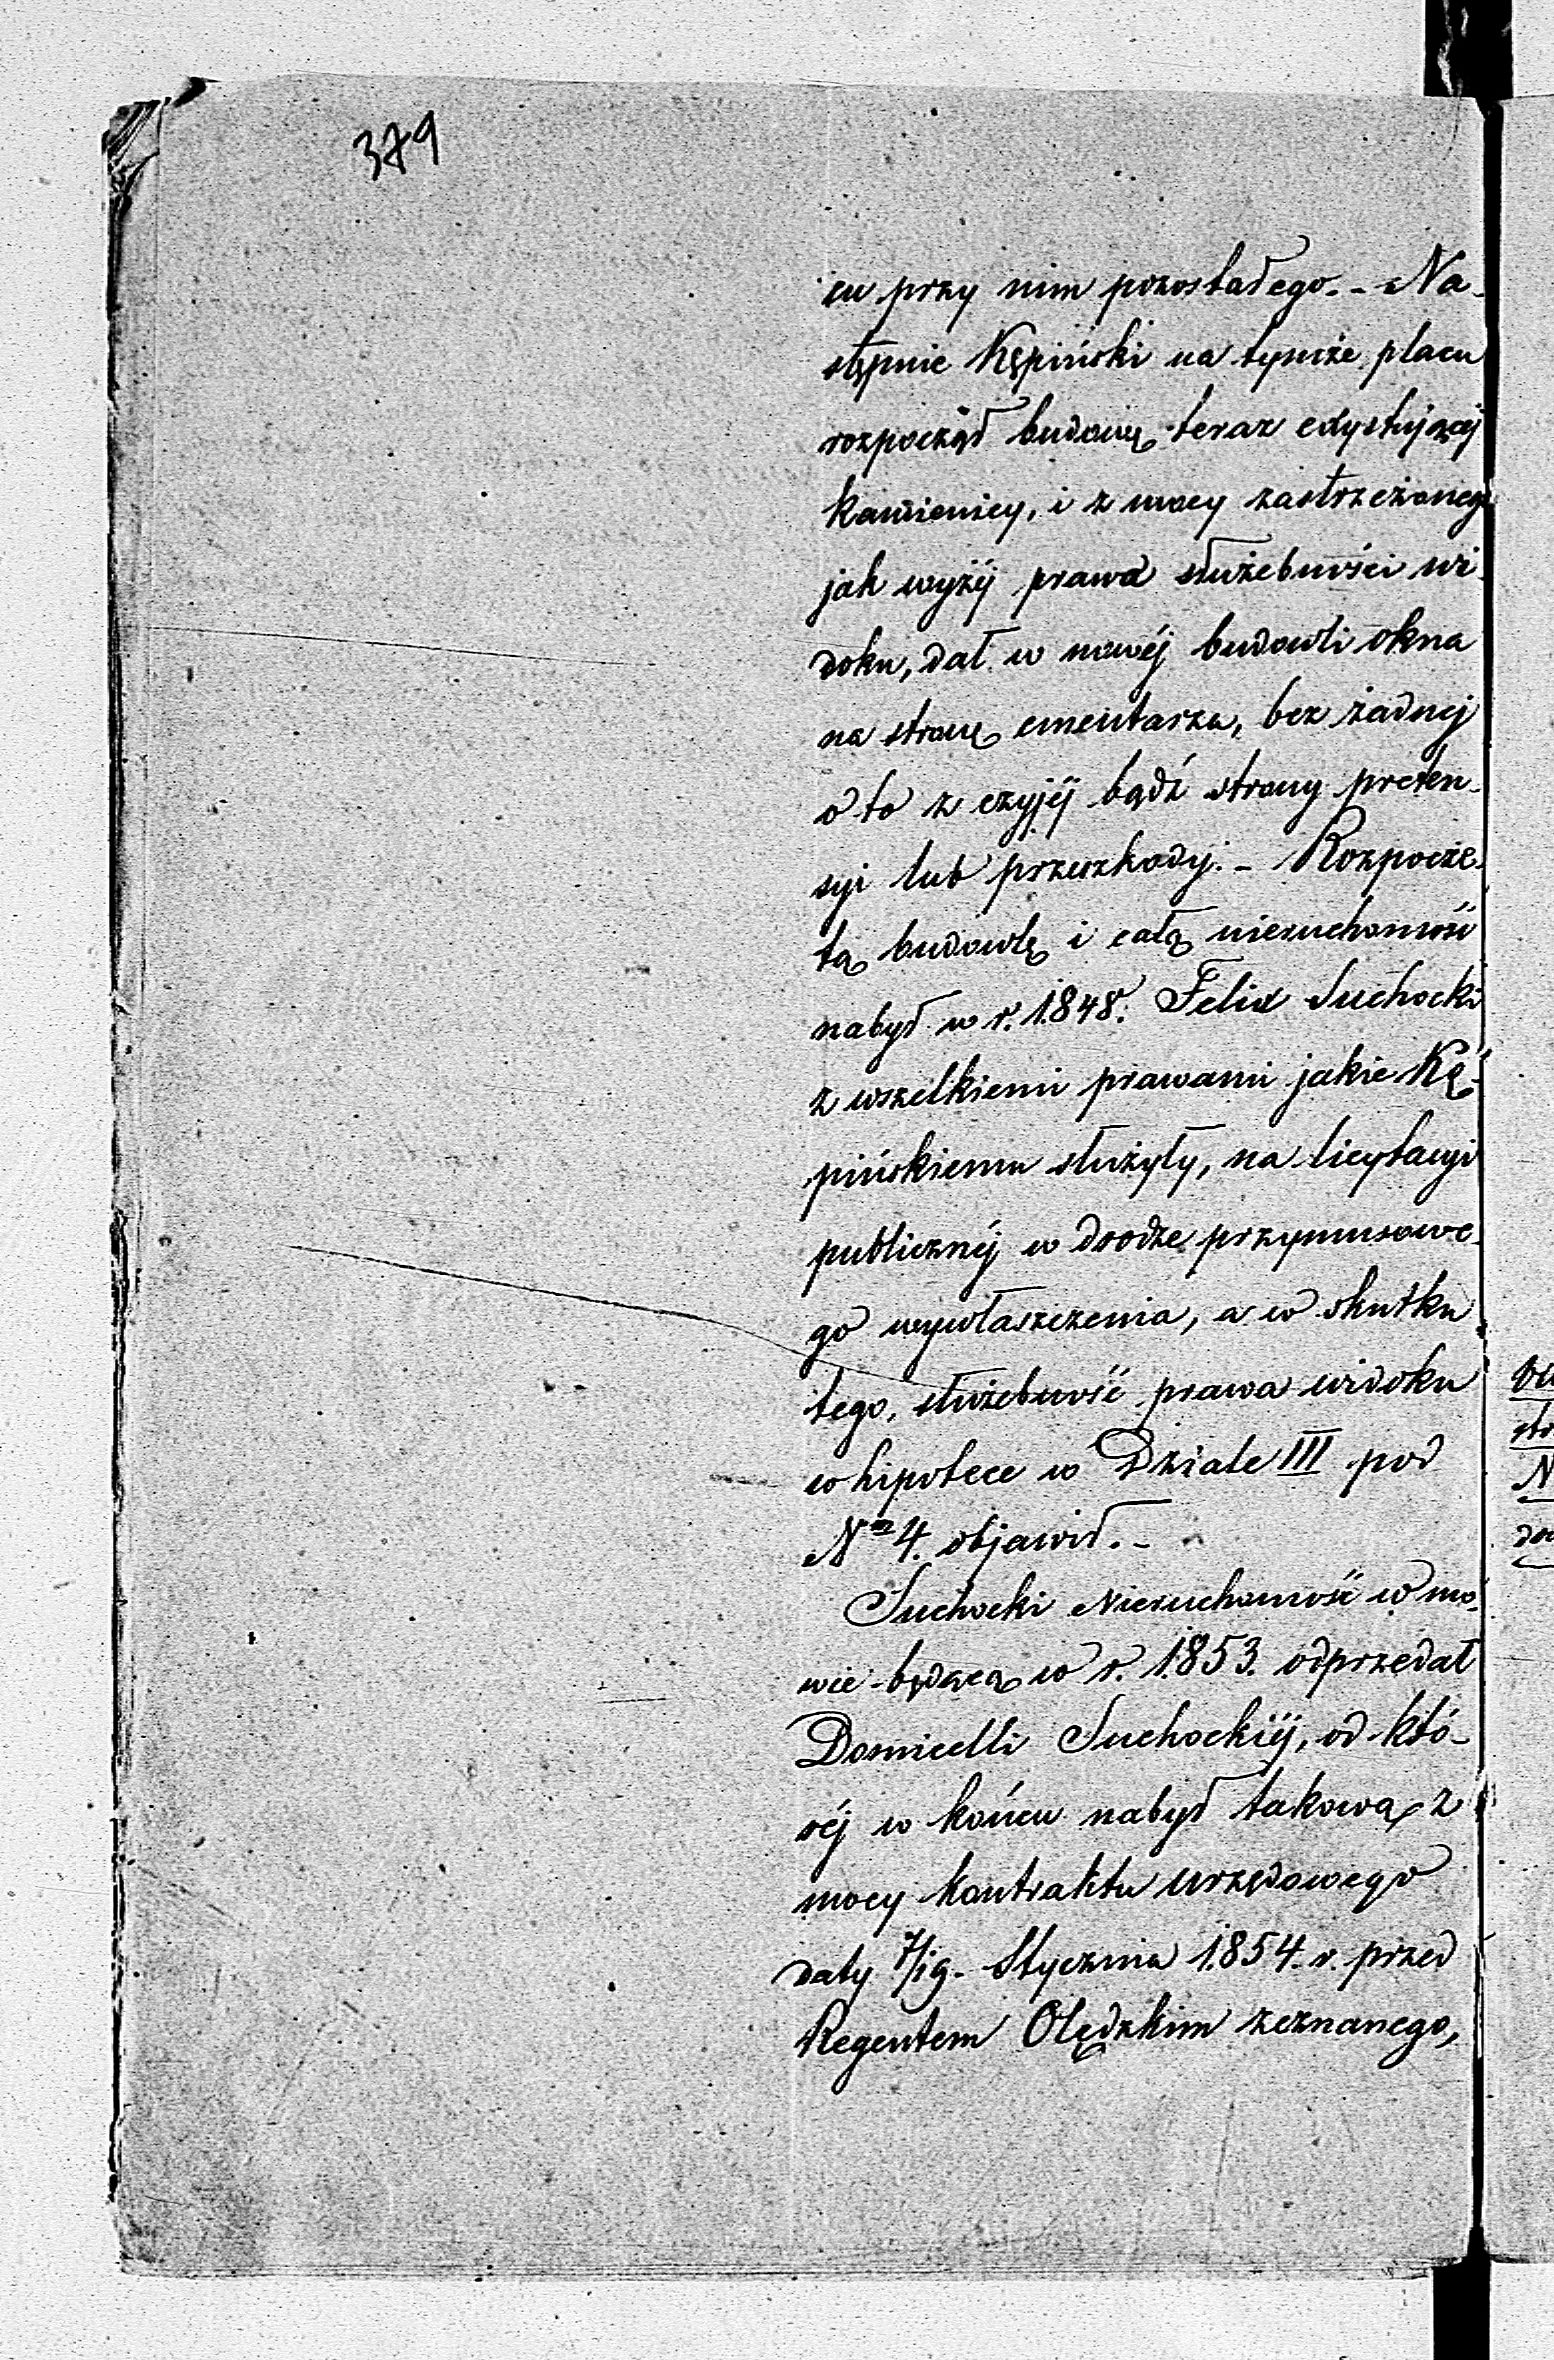 379
cu przy nim pozostałego. - Na-
stępnie Kępiński na tymże placu
rozpoczął budowę teraz exystującej
kamienicy, i z mocy zastrzeżonego
jak wyżéj prawa służebności wi-
doku, dał w nowéj budowli okna
na stronę cmentarza, bez żadnej
o to z czyjéj bądź strony preten-
syi lub przeszkody. - Rozpoczę-
tą budowlę i całą nieruchomość
nabył w r. 1848. Felix Suchocki
z wszelkiemi prawami jakie Kę-
pińskiemu służyły, na licytacyi
publicznéj w drodze przymusowe-
go wywłaszczenia, a w skutku
tego, służebność prawa widoku
w hipotece w Dziale III pod
Nm 4. objawił. -
Suchocki Nieruchomość w mo-
wie będącą w r. 1853. odprzedał
Domicelli Suchockiéj, od któ-
réj w końcu nabył takową z
mocy kontraktu urzędowego
daty 7/19. Stycznia 1854. r. przed
Regentem Olędzkim zeznanego,